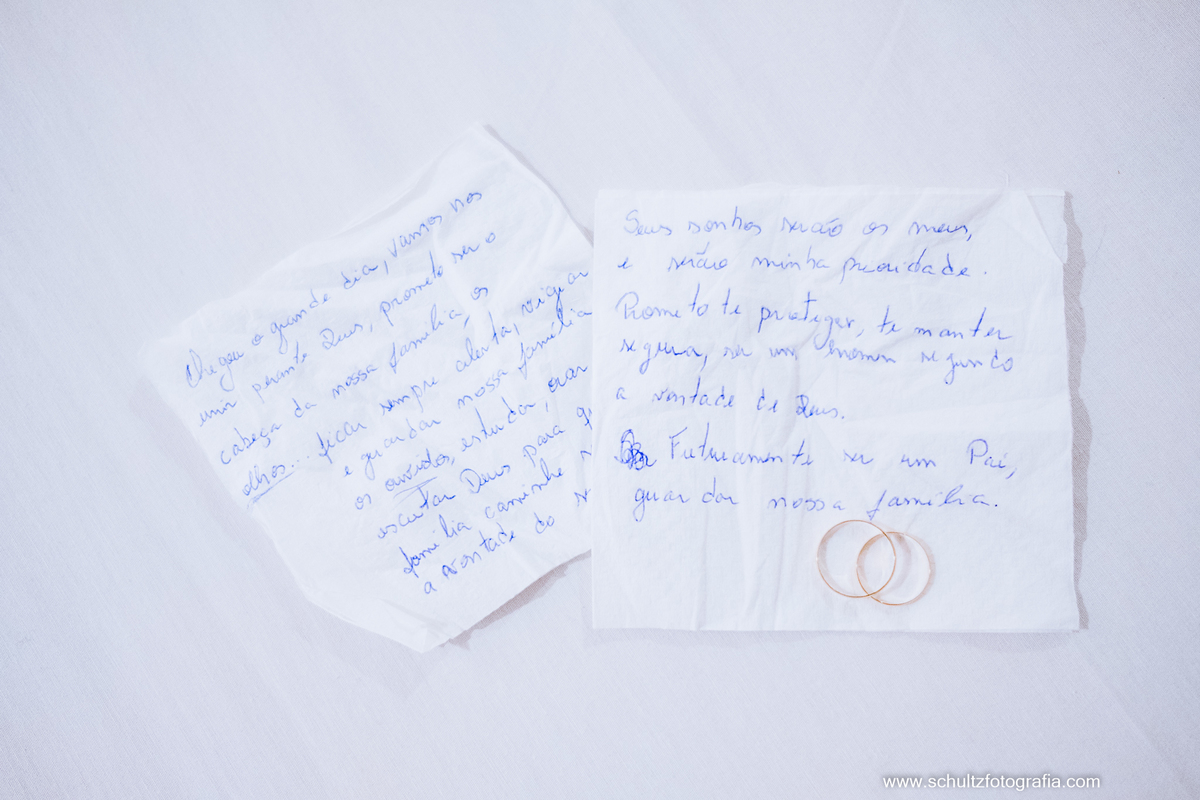 Chegou o grande dia, vamos nos
unir perante Deus, prometo ser o
cabeça da nossa família, os
olhos... ficar sempre alerta, vigiar
e guardar nossa família
os ouvidos, estudar, orar
escutar Deus para
família caminhe
a vontade do
Seus sonhos serão os meus,
e serão minha prioridade.
Prometo te proteger, te manter
segura, ser um homem segundo
a vontade de Deus.
Futuramente ser um Pai,
guardar nossa família.
www.schultzfotografia.com